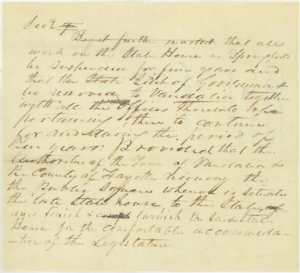 Sec 2
Be it further enacted that all
work on the State House in Springfield
be suspended for five years and
that the State Seat of Government
be removed to Vandalia together
with all the Offices thereto
pertaining there to continue
for and during the period of
years: Provided that the
of the Town of Vandalia &
the County of Fayette
the Public Square whereon is situate
the late State house to the State
and finish & furnish the said State
House for the comfortable accommoda-
-tion of the Legislature